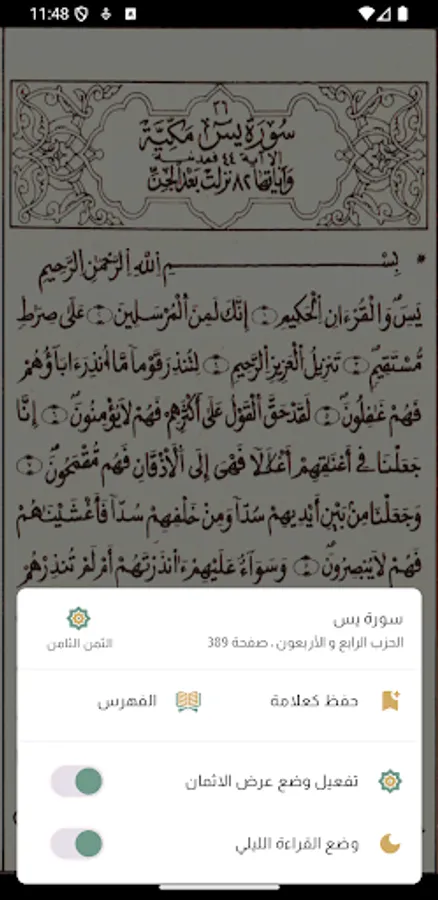 11:48
٣٦
سُورَةُ يسٓ مَكِّيَّةٌ
الا آية ٤٥ فمدنية
وآياتها ٨٢ نزلت بعد الجن
بِسْمِ اِللَّهِ اِلرَّحْمَٰنِ اِلرَّحِيمِ
يَسٓ وَالْقُرْءَانِ اِلْحَكِيمِ ١ إِنَّكَ لَمِنَ اَلْمُرْسَلِينَ ٢ عَلَىٰ صِرَٰطٖ
مُّسْتَقِيمٖ ٣ تَنزِيلُ اُلْعَزِيزِ اِلرَّحِيمِ ٤ لِتُنذِرَ قَوْماٗ مَّا أُنذِرَ ءَابَآؤُهُمْ
فَهُمْ غَٰفِلُونَ ٥ لَقَدْ حَقَّ اَلْقَوْلُ عَلَىٰ أَكْثَرِهِمْ فَهُمْ لَا يُؤْمِنُونَ ٦ إِنَّا
جَعَلْنَا فِي أَعْنَٰقِهِمْ أَغْلَٰلاٗ فَهِيَ إِلَى اَلْأَذْقَانِ فَهُم مُّقْمَحُونَ ٧
وَجَعَلْنَا مِنۢ بَيْنِ أَيْدِيهِمْ سُدّاٗ وَمِنْ خَلْفِهِمْ سُدّاٗ فَأَغْشَيْنَٰهُمْ
فَهُمْ لَا يُبْصِرُونَ ٨ وَسَوَآءٌ عَلَيْهِمْ ءَآنذَرْتَهُمْ أَمْ لَمْ تُنذِرْهُمْ
سورة يس
الحزب الرابع و الأربعون ، صفحة 389
الثمن الثامن
حفظ كعلامة
الفهرس
تفعيل وضع عرض الاثمان
وضع القراءة الليلي